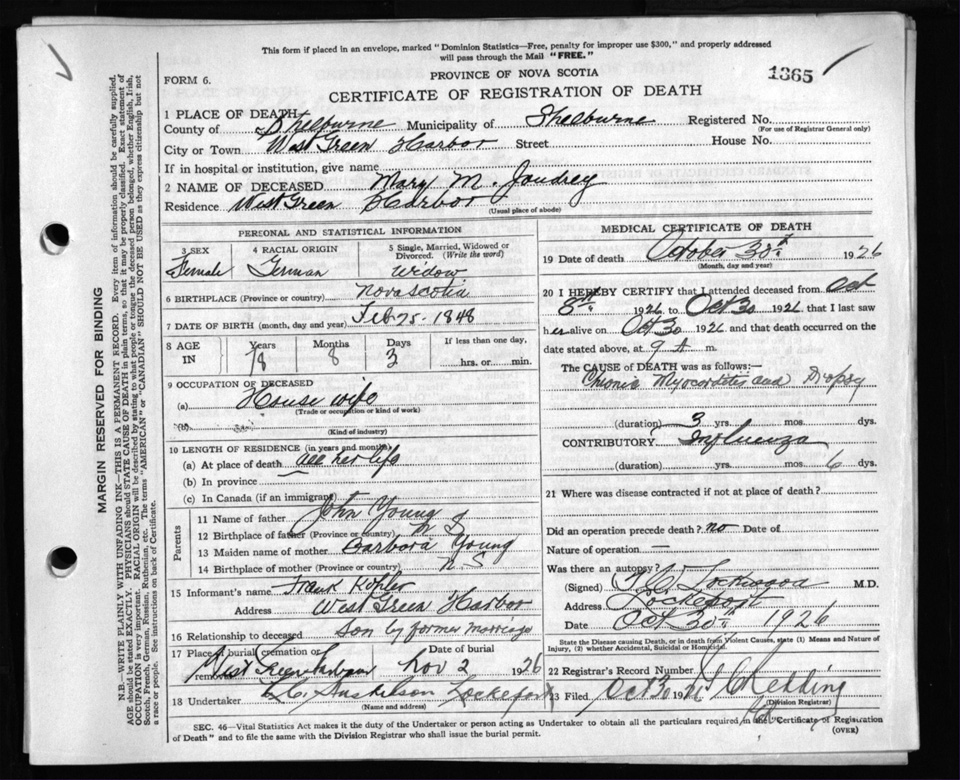 This form if placed in an envelope, marked "Dominion Statistics—Free, penalty for improper use $300," and properly addressed
will pass through the Mail "FREE."
PROVINCE OF NOVA SCOTIA
1365
FORM 6.
CERTIFICATE OF REGISTRATION OF DEATH
1 PLACE OF DEATH
County of Shelburne Municipality of Shelburne Registered No.
(For use of Registrar General only)
City or Town West Green Harbor Street House No.
If in hospital or institution, give name
2 NAME OF DECEASED Mary M. Joudrey
Residence West Green Harbor
(Usual place of abode)
PERSONAL AND STATISTICAL INFORMATION
3 SEX 4 RACIAL ORIGIN 5 Single, Married, Widowed or Divorced. (Write the word)
Female German Widow
6 BIRTHPLACE (Province or country) Nova Scotia
7 DATE OF BIRTH (month, day and year) Feb 25 - 1848
8 AGE IN Years Months Days If less than one day,
78 8 3 hrs. or min.
9 OCCUPATION OF DECEASED
(a) House wife
(Trade or occupation or kind of work)
(b)
(Kind of industry)
10 LENGTH OF RESIDENCE (in years and months)
(a) At place of death all her life
(b) In province
(c) In Canada (if an immigrant)
Parents
11 Name of father John Young
12 Birthplace of father (Province or country) N S
13 Maiden name of mother Barbora Young
14 Birthplace of mother (Province or country) N S
15 Informant's name Frank Kohler
Address West Green Harbor
16 Relationship to deceased Son by former Marriage
17 Place of burial, cremation or removal West Green Harbour Date of burial Nov 2 1926
18 Undertaker Lockeport
(Name and address)
MEDICAL CERTIFICATE OF DEATH
19 Date of death October 30th 1926
(Month, day and year)
20 I HEREBY CERTIFY that I attended deceased from Oct
8th 1926 to Oct 30 1926, that I last saw
her alive on Oct 30 1926 and that death occurred on the
date stated above, at 9 A m.
The CAUSE of DEATH was as follows:—
Chronic Myocarditis and Dropsy
(duration) 3 yrs. mos. dys.
CONTRIBUTORY Influenza
(duration) yrs. mos. 6 dys.
21 Where was disease contracted if not at place of death?
Did an operation precede death? no Date of
Nature of operation —
Was there an autopsy?
(Signed) Lockwood M.D.
Address Lockeport
Oct 30th 1926
State the Disease causing Death, or in death from Violent Causes, state (1) Means and Nature of
Injury, (2) whether Accidental, Suicidal or Homicidal.
22 Registrar's Record Number
23 Filed Oct 30 1926 Redding
(Division Registrar)
SEC. 46—Vital Statistics Act makes it the duty of the Undertaker or person acting as Undertaker to obtain all the particulars required in the "Certificate of Registration
of Death" and to file the same with the Division Registrar who shall issue the burial permit.
(OVER)
MARGIN RESERVED FOR BINDING
N.B.—WRITE PLAINLY WITH UNFADING INK—THIS IS A PERMANENT RECORD. Every item of information should be carefully supplied.
AGE should be stated EXACTLY. PHYSICIANS should STATE CAUSE OF DEATH in plain terms, so that it may be properly classified. Exact statement of
OCCUPATION is very important. RACIAL ORIGIN will be described by stating to what people or tongue the deceased person belonged, whether English, Irish,
Scotch, French, German, Russian, Ruthenian, etc. The terms "AMERICAN" or "CANADIAN" SHOULD NOT BE USED as they express citizenship but not
a race or people. See instructions on back of Certificate.